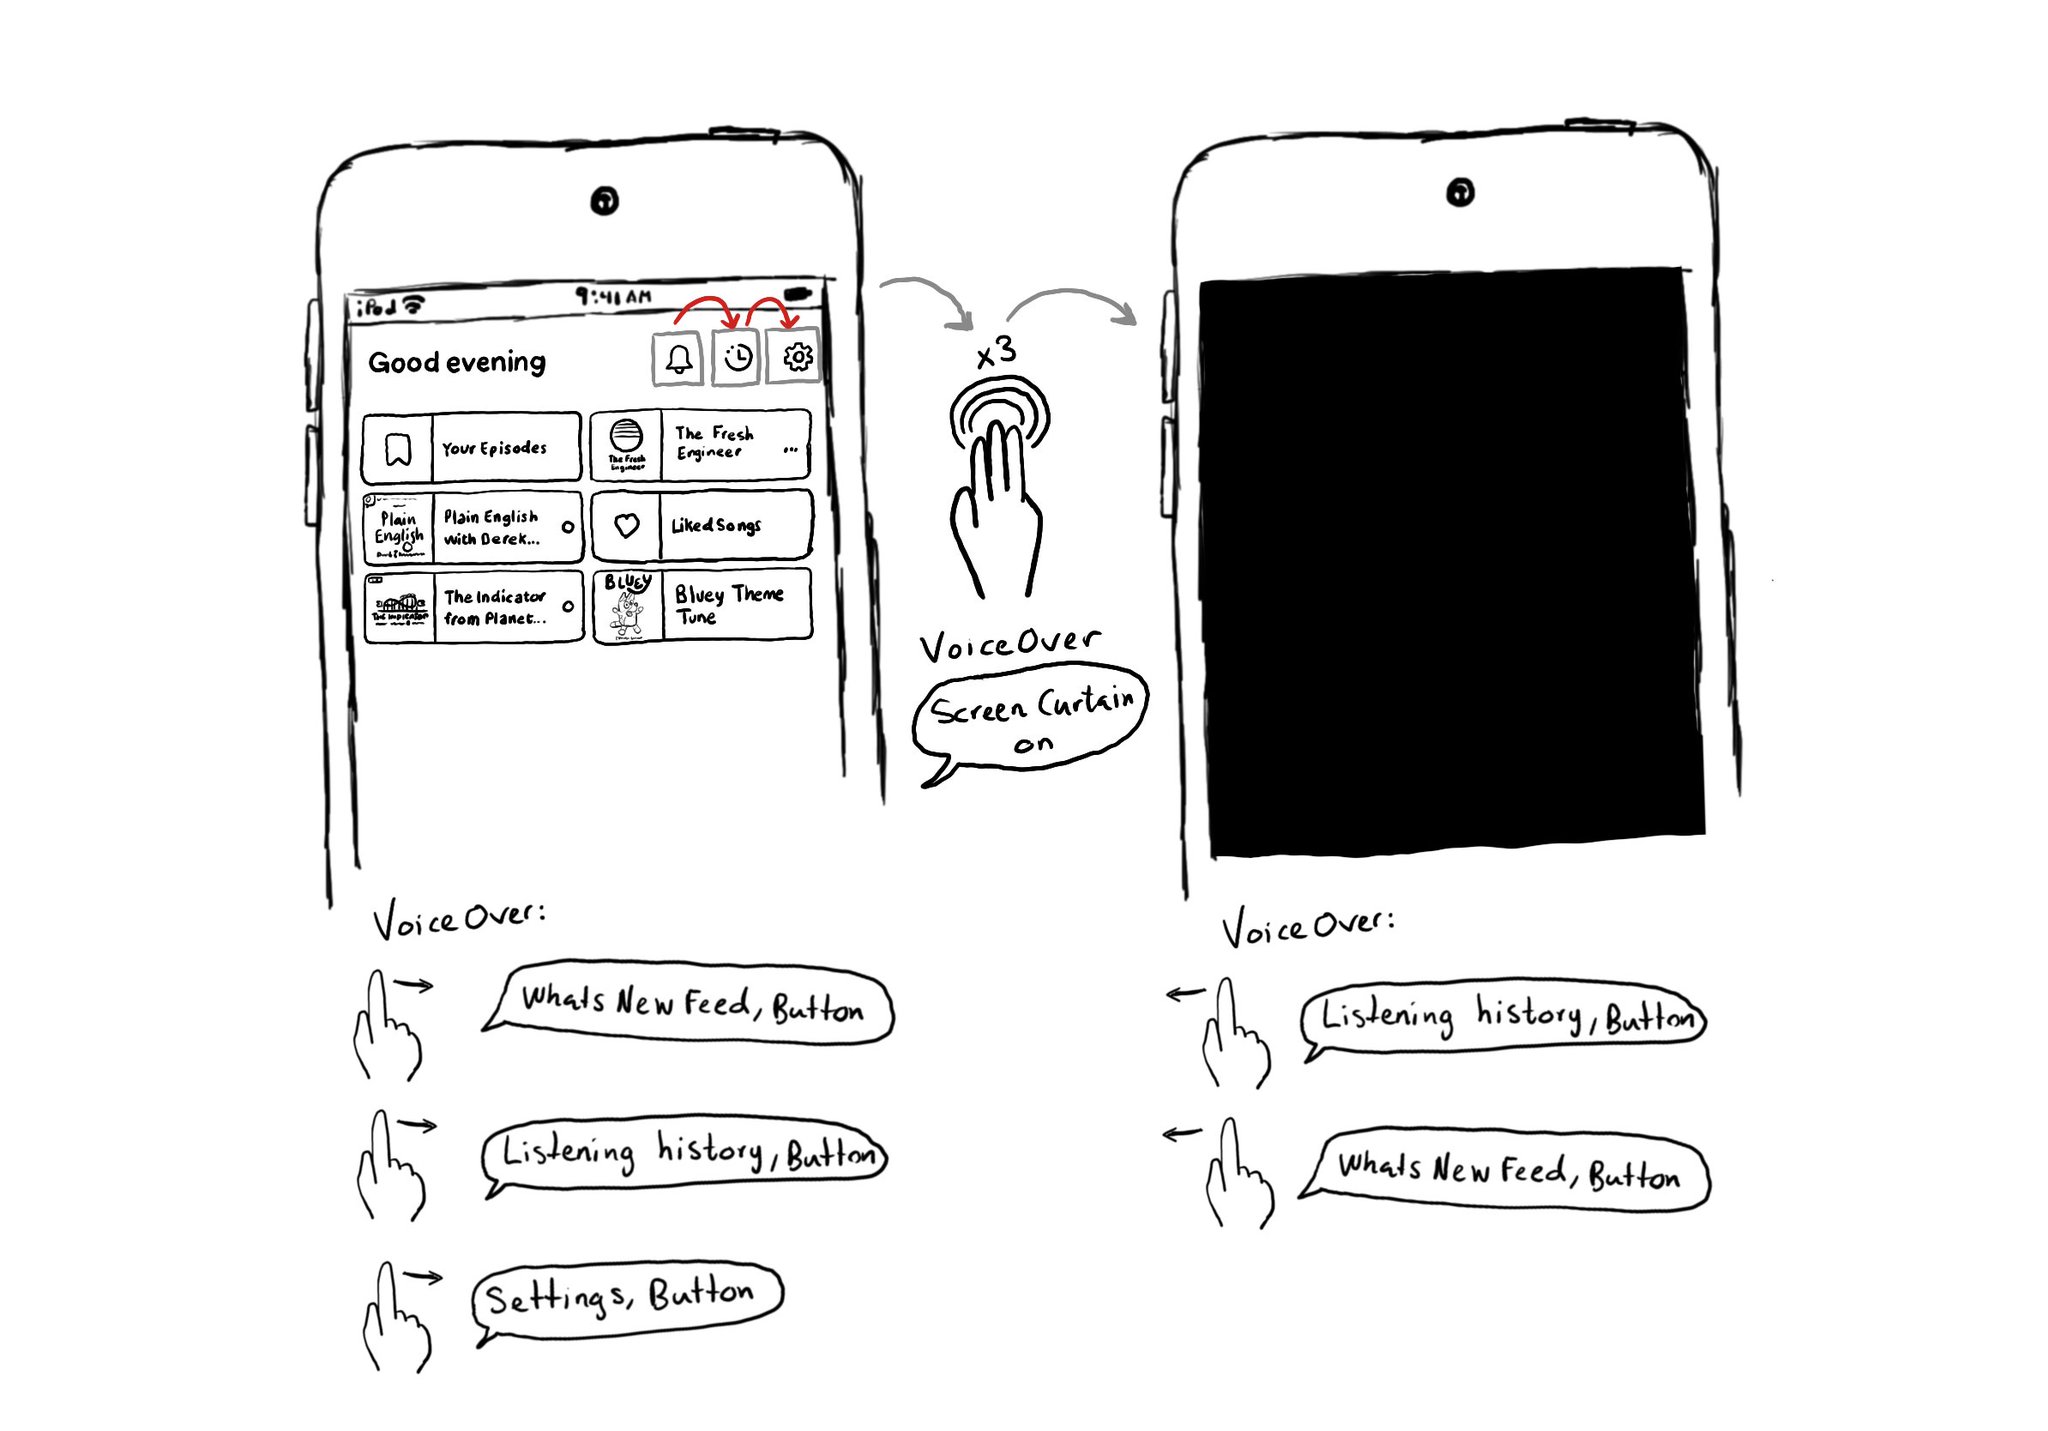 iPod 9:41 AM
Good evening
Your Episodes
The Fresh
Engineer
The Fresh
Engineer
...
Plain
English
Plain English
with Derek...
Liked Songs
The Indicator
The Indicator
from Planet...
BLUEY
Bluey Theme
Tune
x3
VoiceOver
Screen Curtain
on
VoiceOver:
Whats New Feed, Button
Listening history, Button
Settings, Button
VoiceOver:
Listening history, Button
Whats New Feed, Button